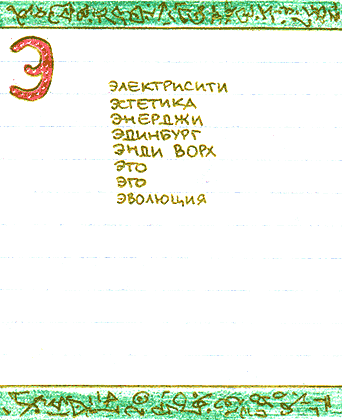 Э
ЭЛЕКТРИСИТИ
ЭСТЕТИКА
ЭНЕРДЖИ
ЭДИНБУРГ
ЭНДИ ВОРХ
ЭТО
ЭГО
ЭВОЛЮЦИЯ